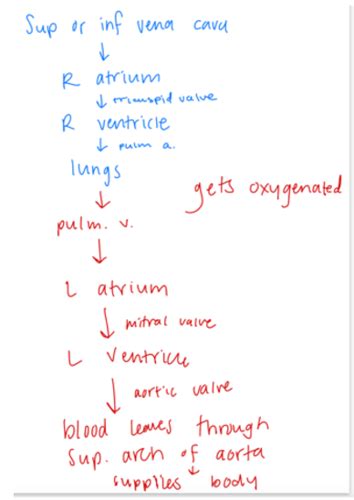 Sup or inf vena cava
↓
R atrium
↓ tricuspid valve
R ventricle
↓ pulm a.
lungs
↓ gets oxygenated
pulm. v.
↓
L atrium
↓ mitral valve
L ventricle
↓ aortic valve
blood leaves through
sup. arch of aorta
↓
supplies body